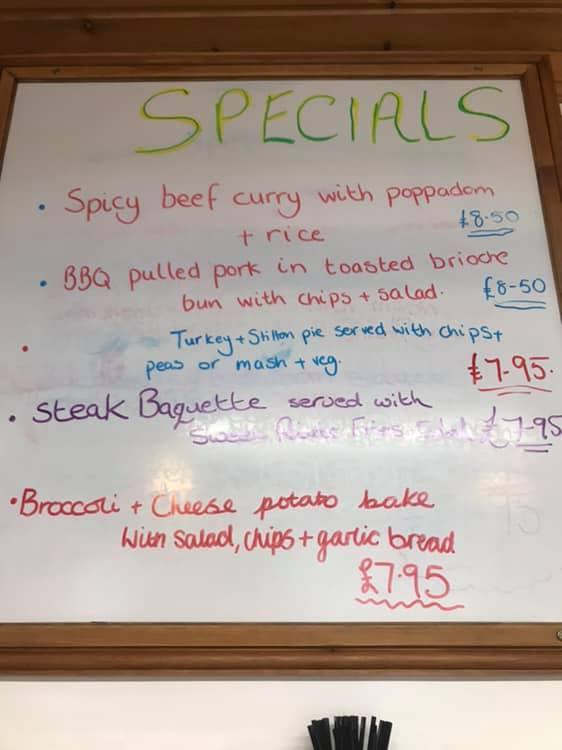 SPECIALS
• Spicy beef curry with poppadom
+ rice £8.50
• BBQ pulled pork in toasted brioche
bun with chips + salad. £8-50
• Turkey + Stilton pie served with chips +
peas or mash + veg. £7.95.
• Steak Baguette served with
Sweet Potato Fries Salad £7-95
• Broccoli + Cheese potato bake
With salad, chips + garlic bread
£7.95